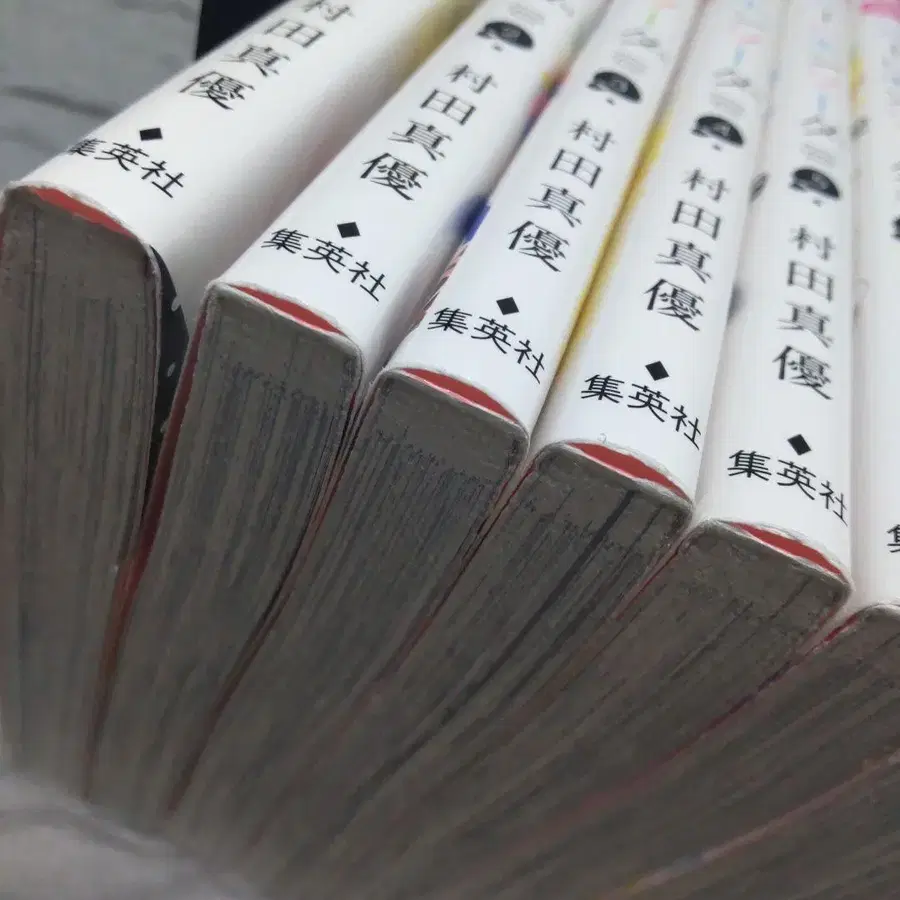 村田真優
集英社
2
村田真優
集英社
3
村田真優
集英社
4
村田真優
集英社
5
村田真優
集英社